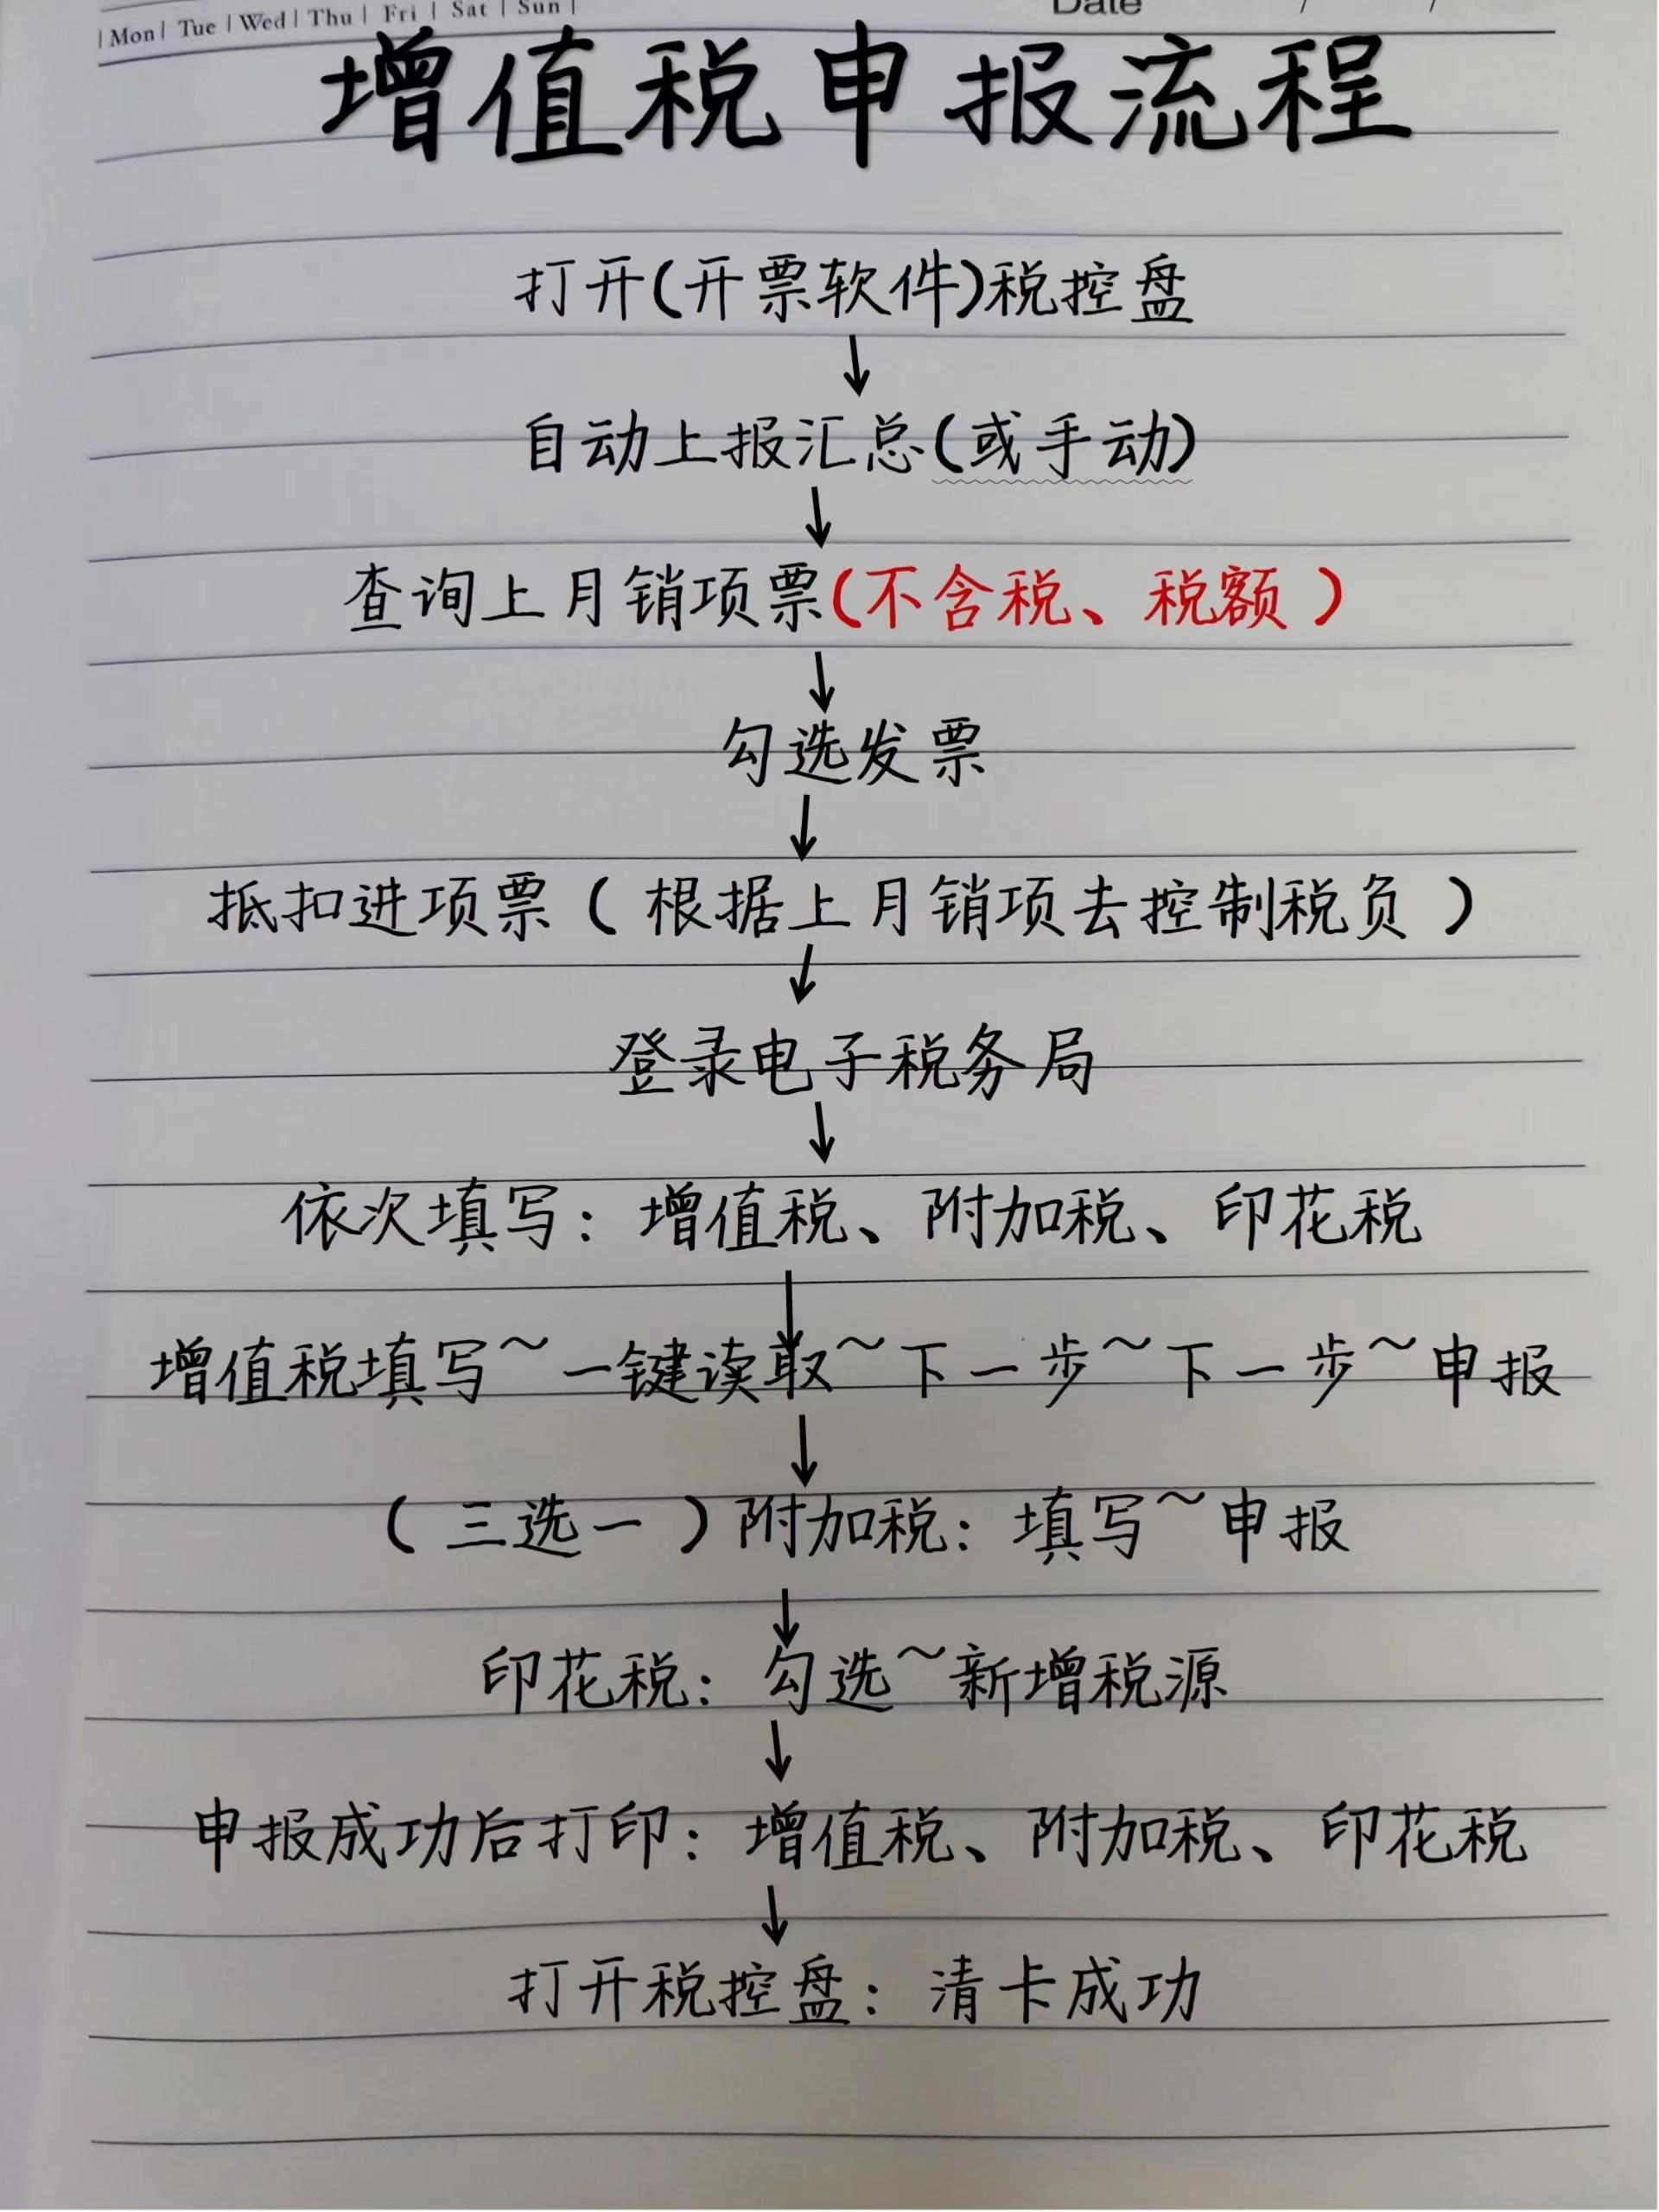 |Mon| Tue |Wed| Thu | Fri | Sat | Sun |
Date / /
增值税申报流程
打开(开票软件)税控盘
↓
自动上报汇总(或手动)
↓
查询上月销项票(不含税、税额)
↓
勾选发票
↓
抵扣进项票(根据上月销项去控制税负)
↓
登录电子税务局
↓
依次填写:增值税、附加税、印花税
↓
增值税填写~一键读取~下一步~下一步~申报
↓
(三选一)附加税:填写~申报
↓
印花税:勾选~新增税源
↓
申报成功后打印:增值税、附加税、印花税
↓
打开税控盘:清卡成功